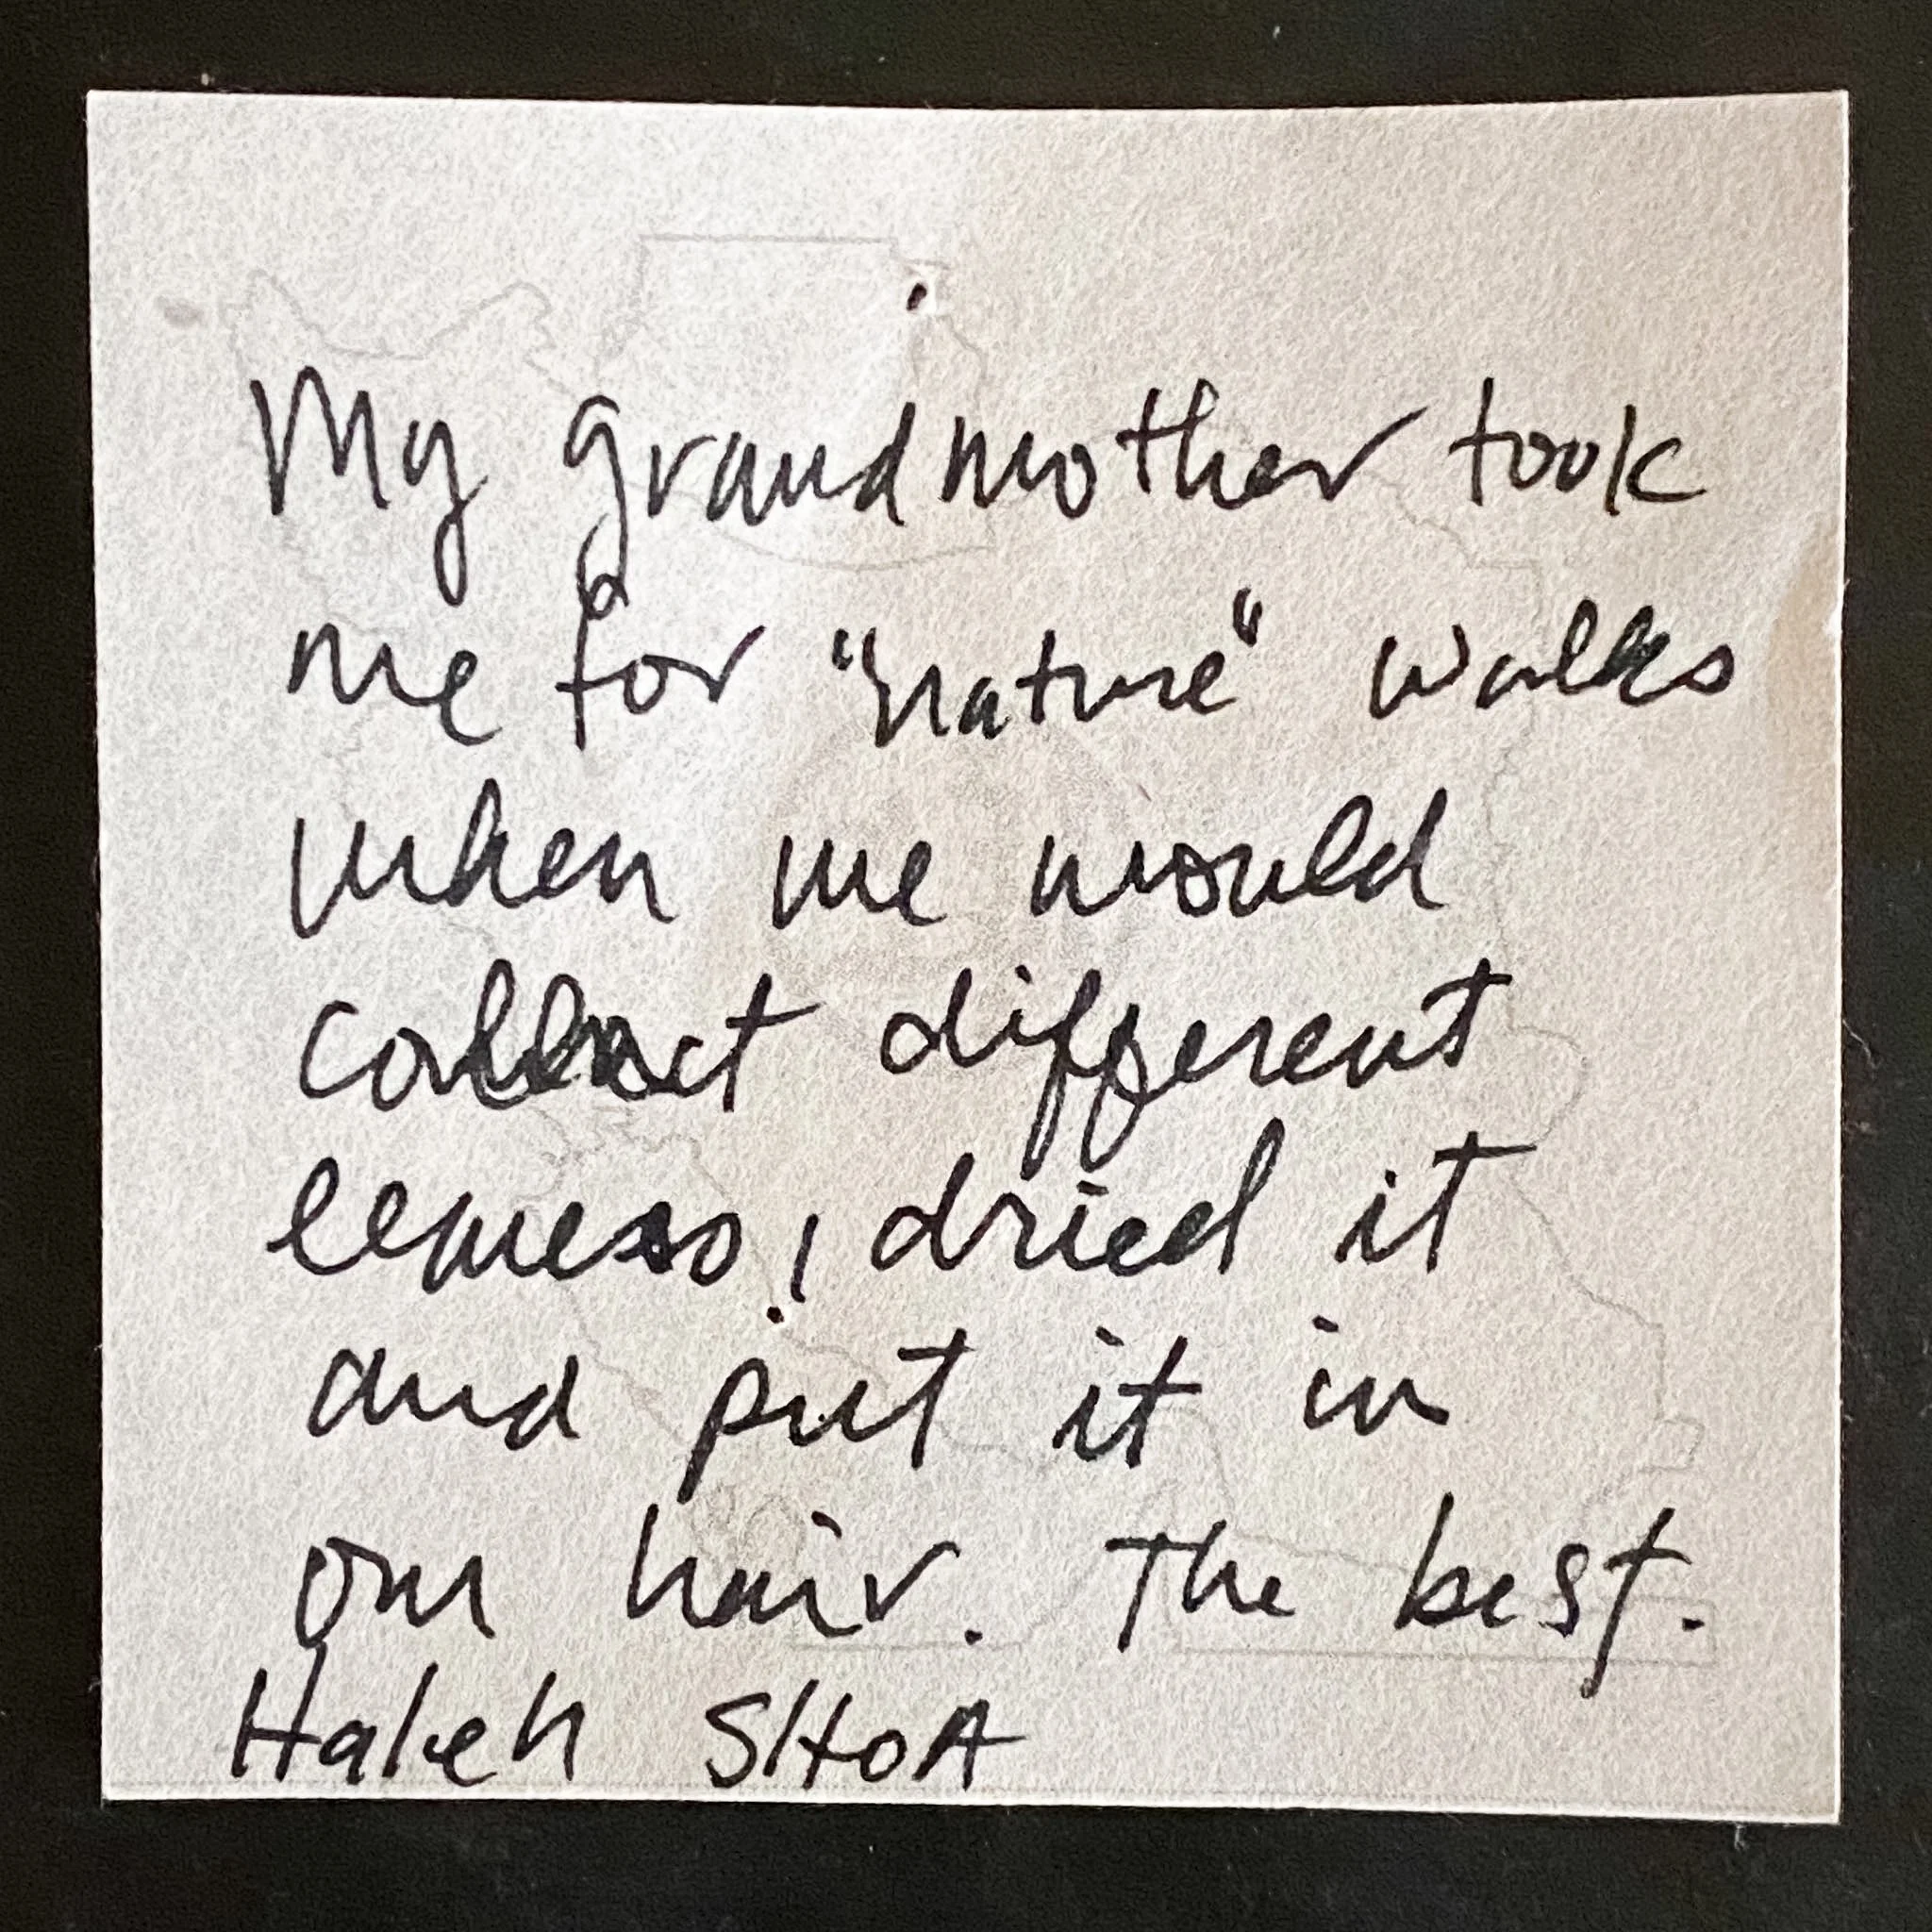 My grandmother took
me for "nature" walks
when we would
collect different
leaves, dried it
and put it in
our hair. The best.
Haleh SHOA